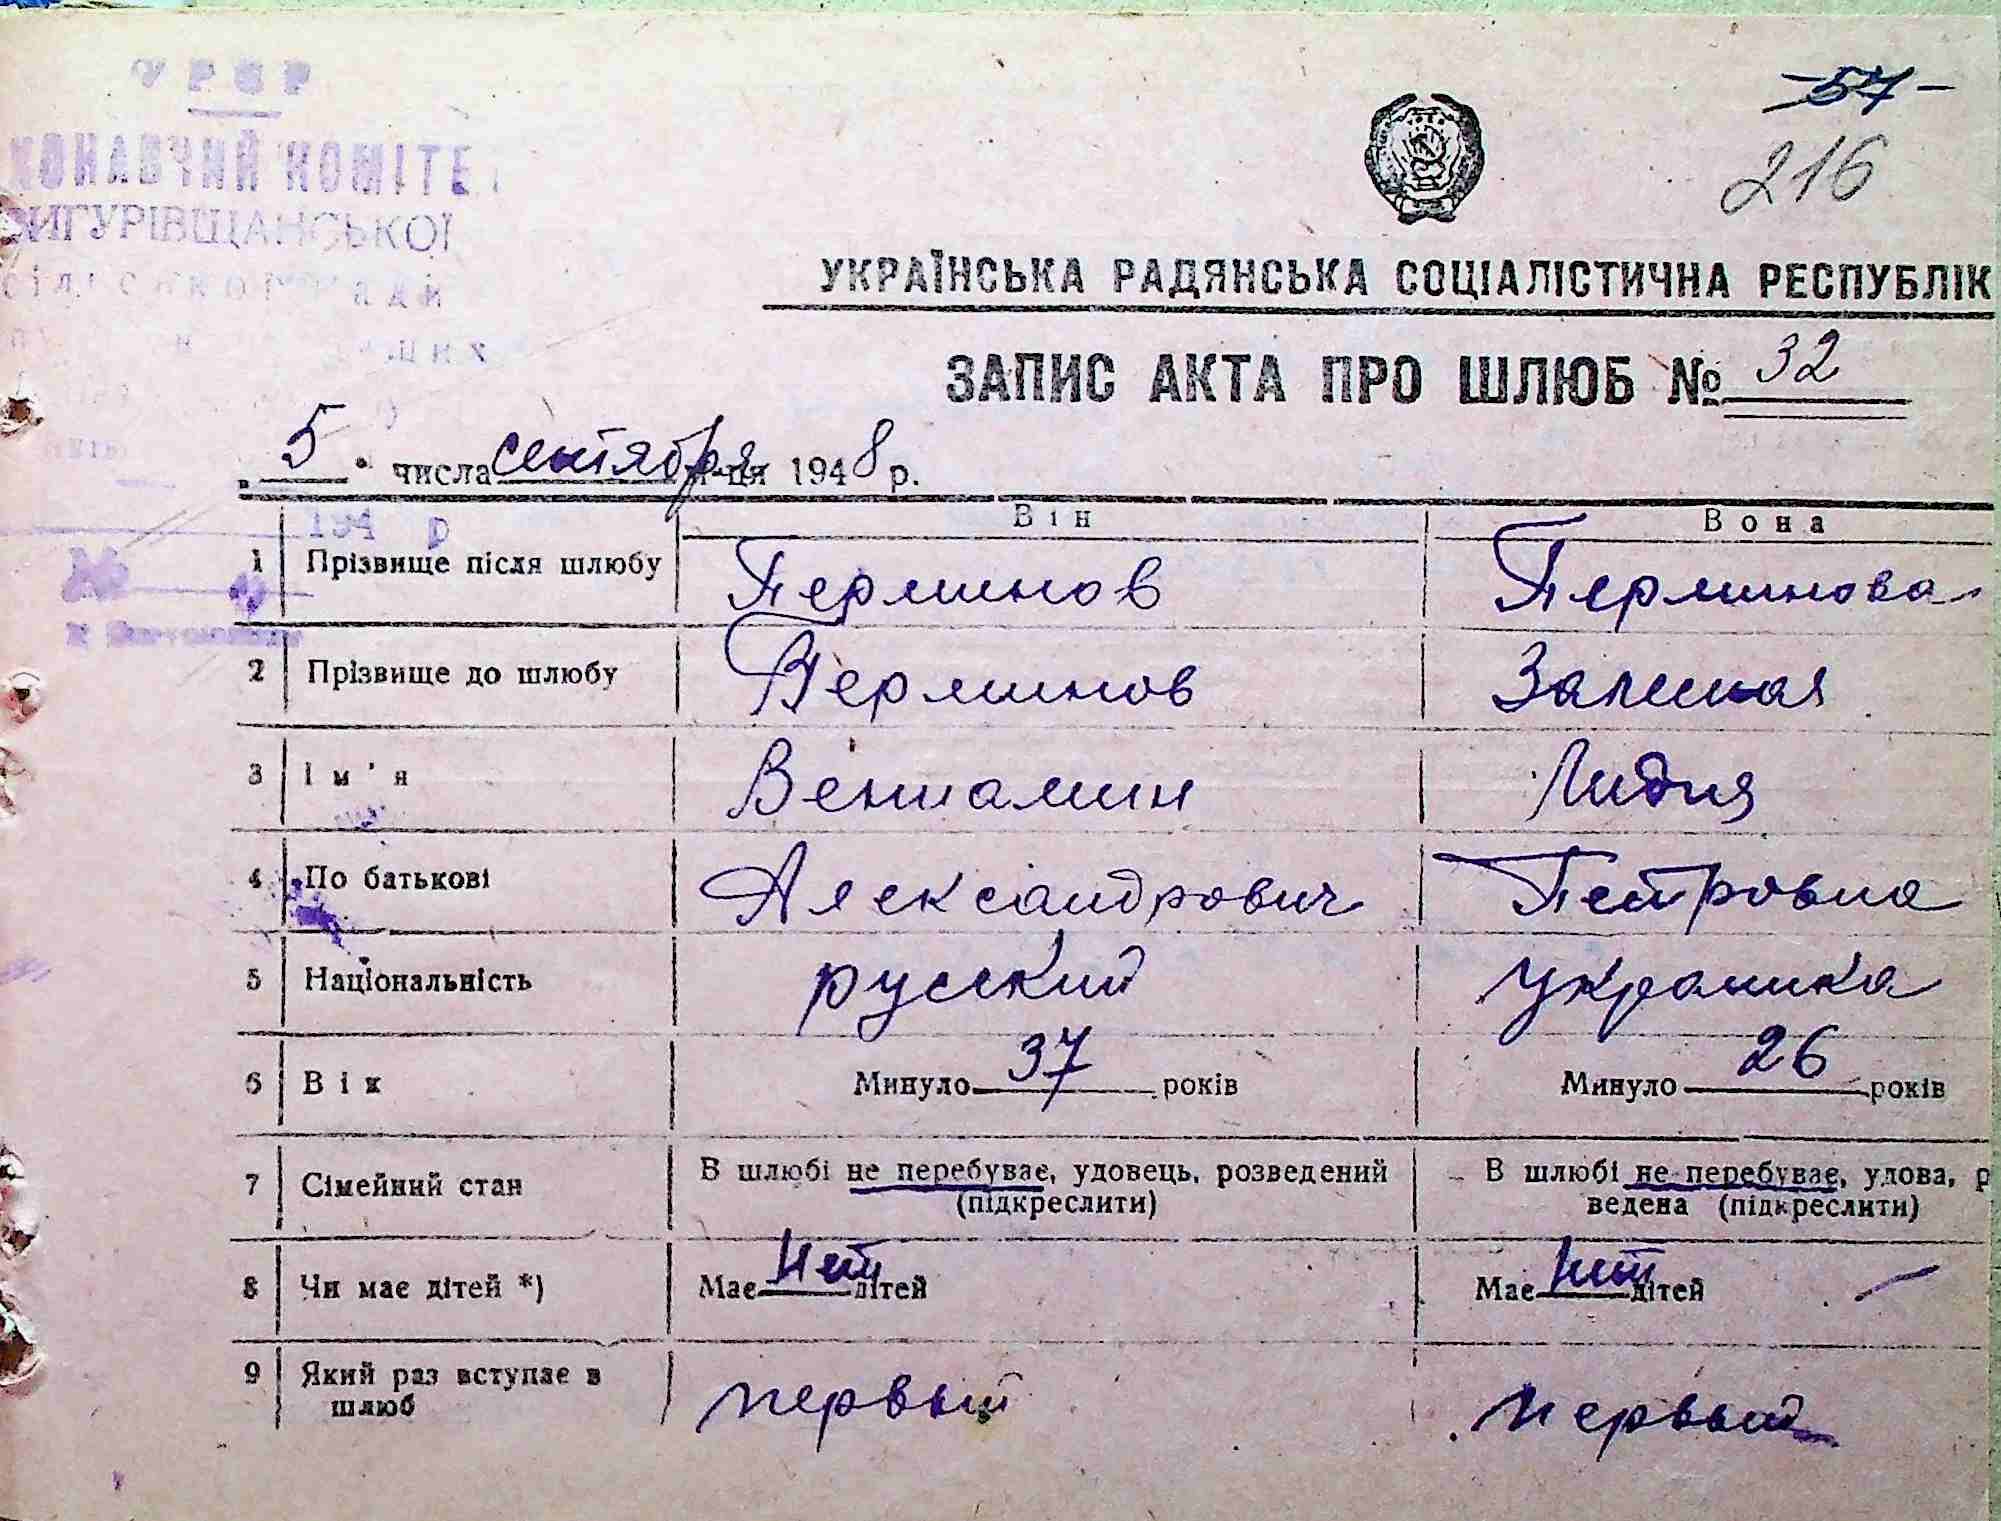 УРСР
КОНАВЧИЙ КОМІТЕ
ЗИГУРІВЩАНСЬКОЇ
-57-
216
УКРАЇНСЬКА РАДЯНСЬКА СОЦІАЛІСТИЧНА РЕСПУБЛІК
ЗАПИС АКТА ПРО ШЛЮБ № 32
5 числа сентября м-ця 1948 р.
194 р
№
Він Вона
1 Прізвище після шлюбу Перминов Перминова
2 Прізвище до шлюбу Перминов Залеская
3 Ім'я Вениамин Лидия
4 По батькові Александрович Петровна
5 Національність русский украинка
6 Вік Минуло 37 років Минуло 26 років
7 Сімейний стан В шлюбі не перебуває, удовець, розведений В шлюбі не перебуває, удова, р
(підкреслити) ведена (підкреслити)
8 Чи має дітей *) Має нет дітей Має нет дітей —
9 Який раз вступає в первый первый
шлюб